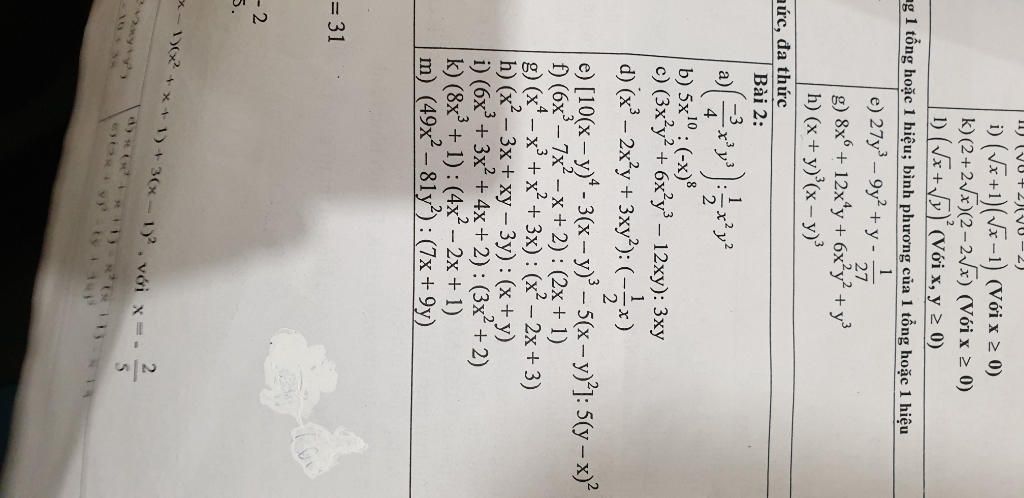 i) (√x+1)(√x−1) (Với x ≥ 0)
k)(2+2√x)(2−2√x) (Với x ≥ 0)
l) (√x+√y)² (Với x, y ≥ 0)
ng 1 tổng hoặc 1 hiệu; bình phương của 1 tổng hoặc 1 hiệu
e) 27y³ − 9y² + y - 1/27
g) 8x⁶ + 12x⁴y + 6x²y² + y³
h) (x + y)³(x − y)³
hức, đa thức
Bài 2:
a) (−3/4 x³y³) : 1/2 x²y²
b) 5x¹⁰ : (-x)⁸
c) (3x²y² + 6x²y³ − 12xy): 3xy
d) (x³ − 2x²y + 3xy²): (−1/2 x)
e) [10(x − y)⁴ - 3(x − y)³ − 5(x − y)²]: 5(y − x)²
f) (6x³ − 7x² − x + 2) : (2x + 1)
g) (x⁴ − x³ + x² + 3x) : (x² − 2x + 3)
h) (x² − 3x + xy − 3y) : (x + y)
i) (6x³ + 3x² + 4x + 2) : (3x² + 2)
k) (8x³ + 1) : (4x² − 2x + 1)
m) (49x² − 81y²) : (7x + 9y)
= 31
- 2
x − 1)(x² + x + 1) + 3(x − 1)², với x = - 2/5